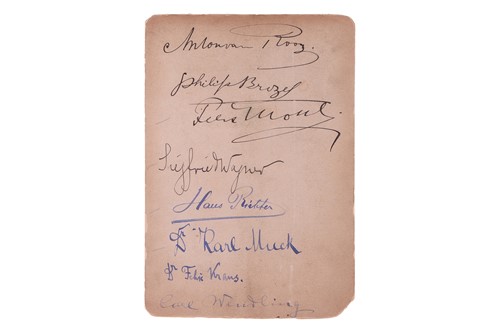 Anton van Rooy.
Philip Brozel
Felix Mottl
Siegfried Wagner
Hans Richter
Dr. Karl Muck
Dr Felix Kraus.
Carl Wendling